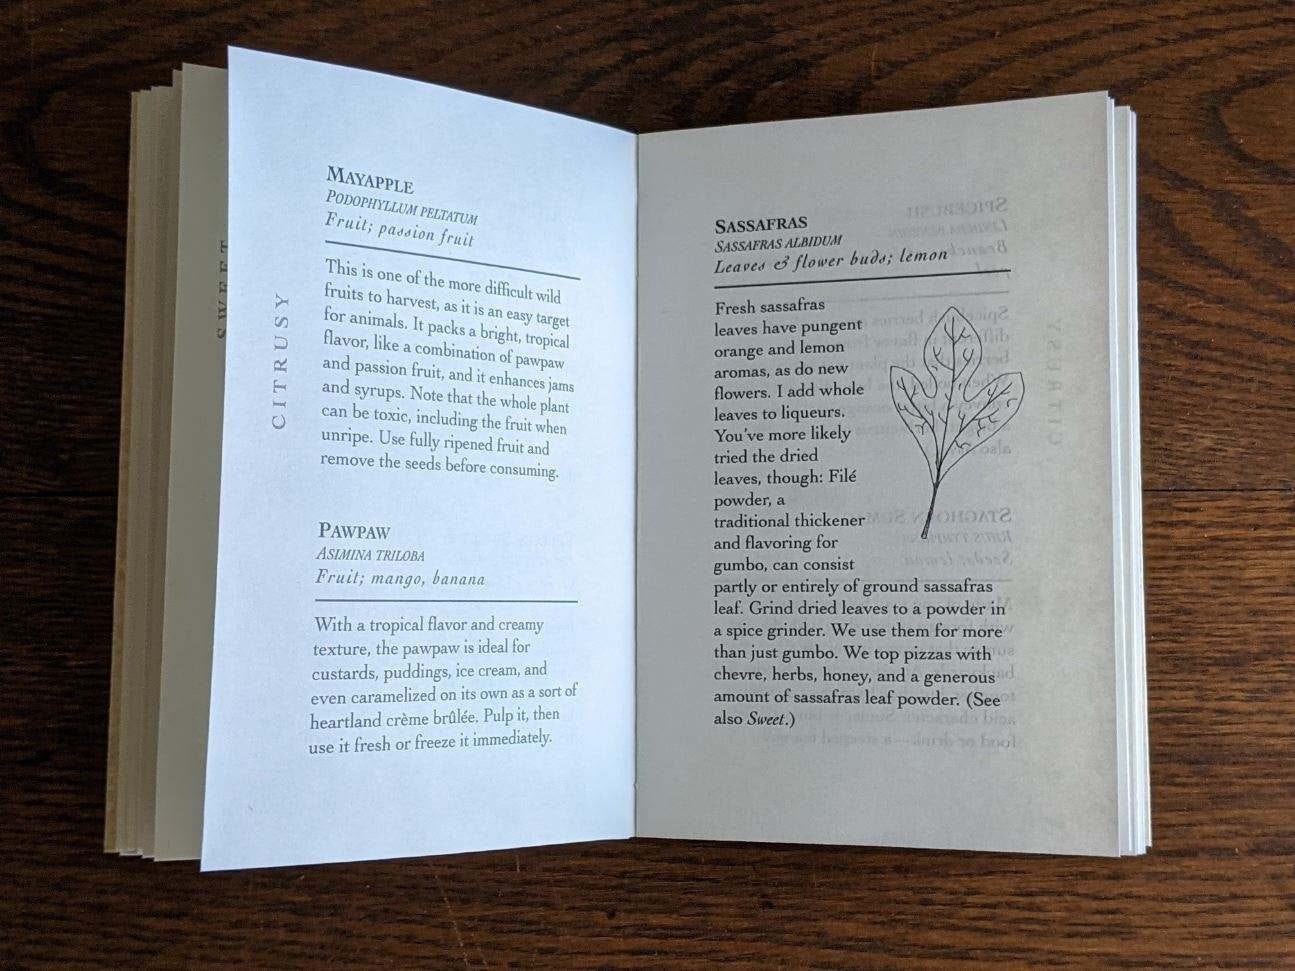 SWEET
CITRUSY
MAYAPPLE
PODOPHYLLUM PELTATUM
Fruit; passion fruit
This is one of the more difficult wild
fruits to harvest, as it is an easy target
for animals. It packs a bright, tropical
flavor, like a combination of pawpaw
and passion fruit, and it enhances jams
and syrups. Note that the whole plant
can be toxic, including the fruit when
unripe. Use fully ripened fruit and
remove the seeds before consuming.
PAWPAW
ASIMINA TRILOBA
Fruit; mango, banana
With a tropical flavor and creamy
texture, the pawpaw is ideal for
custards, puddings, ice cream, and
even caramelized on its own as a sort of
heartland crème brûlée. Pulp it, then
use it fresh or freeze it immediately.
SASSAFRAS
SASSAFRAS ALBIDUM
Leaves & flower buds; lemon
Fresh sassafras
leaves have pungent
orange and lemon
aromas, as do new
flowers. I add whole
leaves to liqueurs.
You've more likely
tried the dried
leaves, though: Filé
powder, a
traditional thickener
and flavoring for
gumbo, can consist
partly or entirely of ground sassafras
leaf. Grind dried leaves to a powder in
a spice grinder. We use them for more
than just gumbo. We top pizzas with
chevre, herbs, honey, and a generous
amount of sassafras leaf powder. (See
also Sweet.)